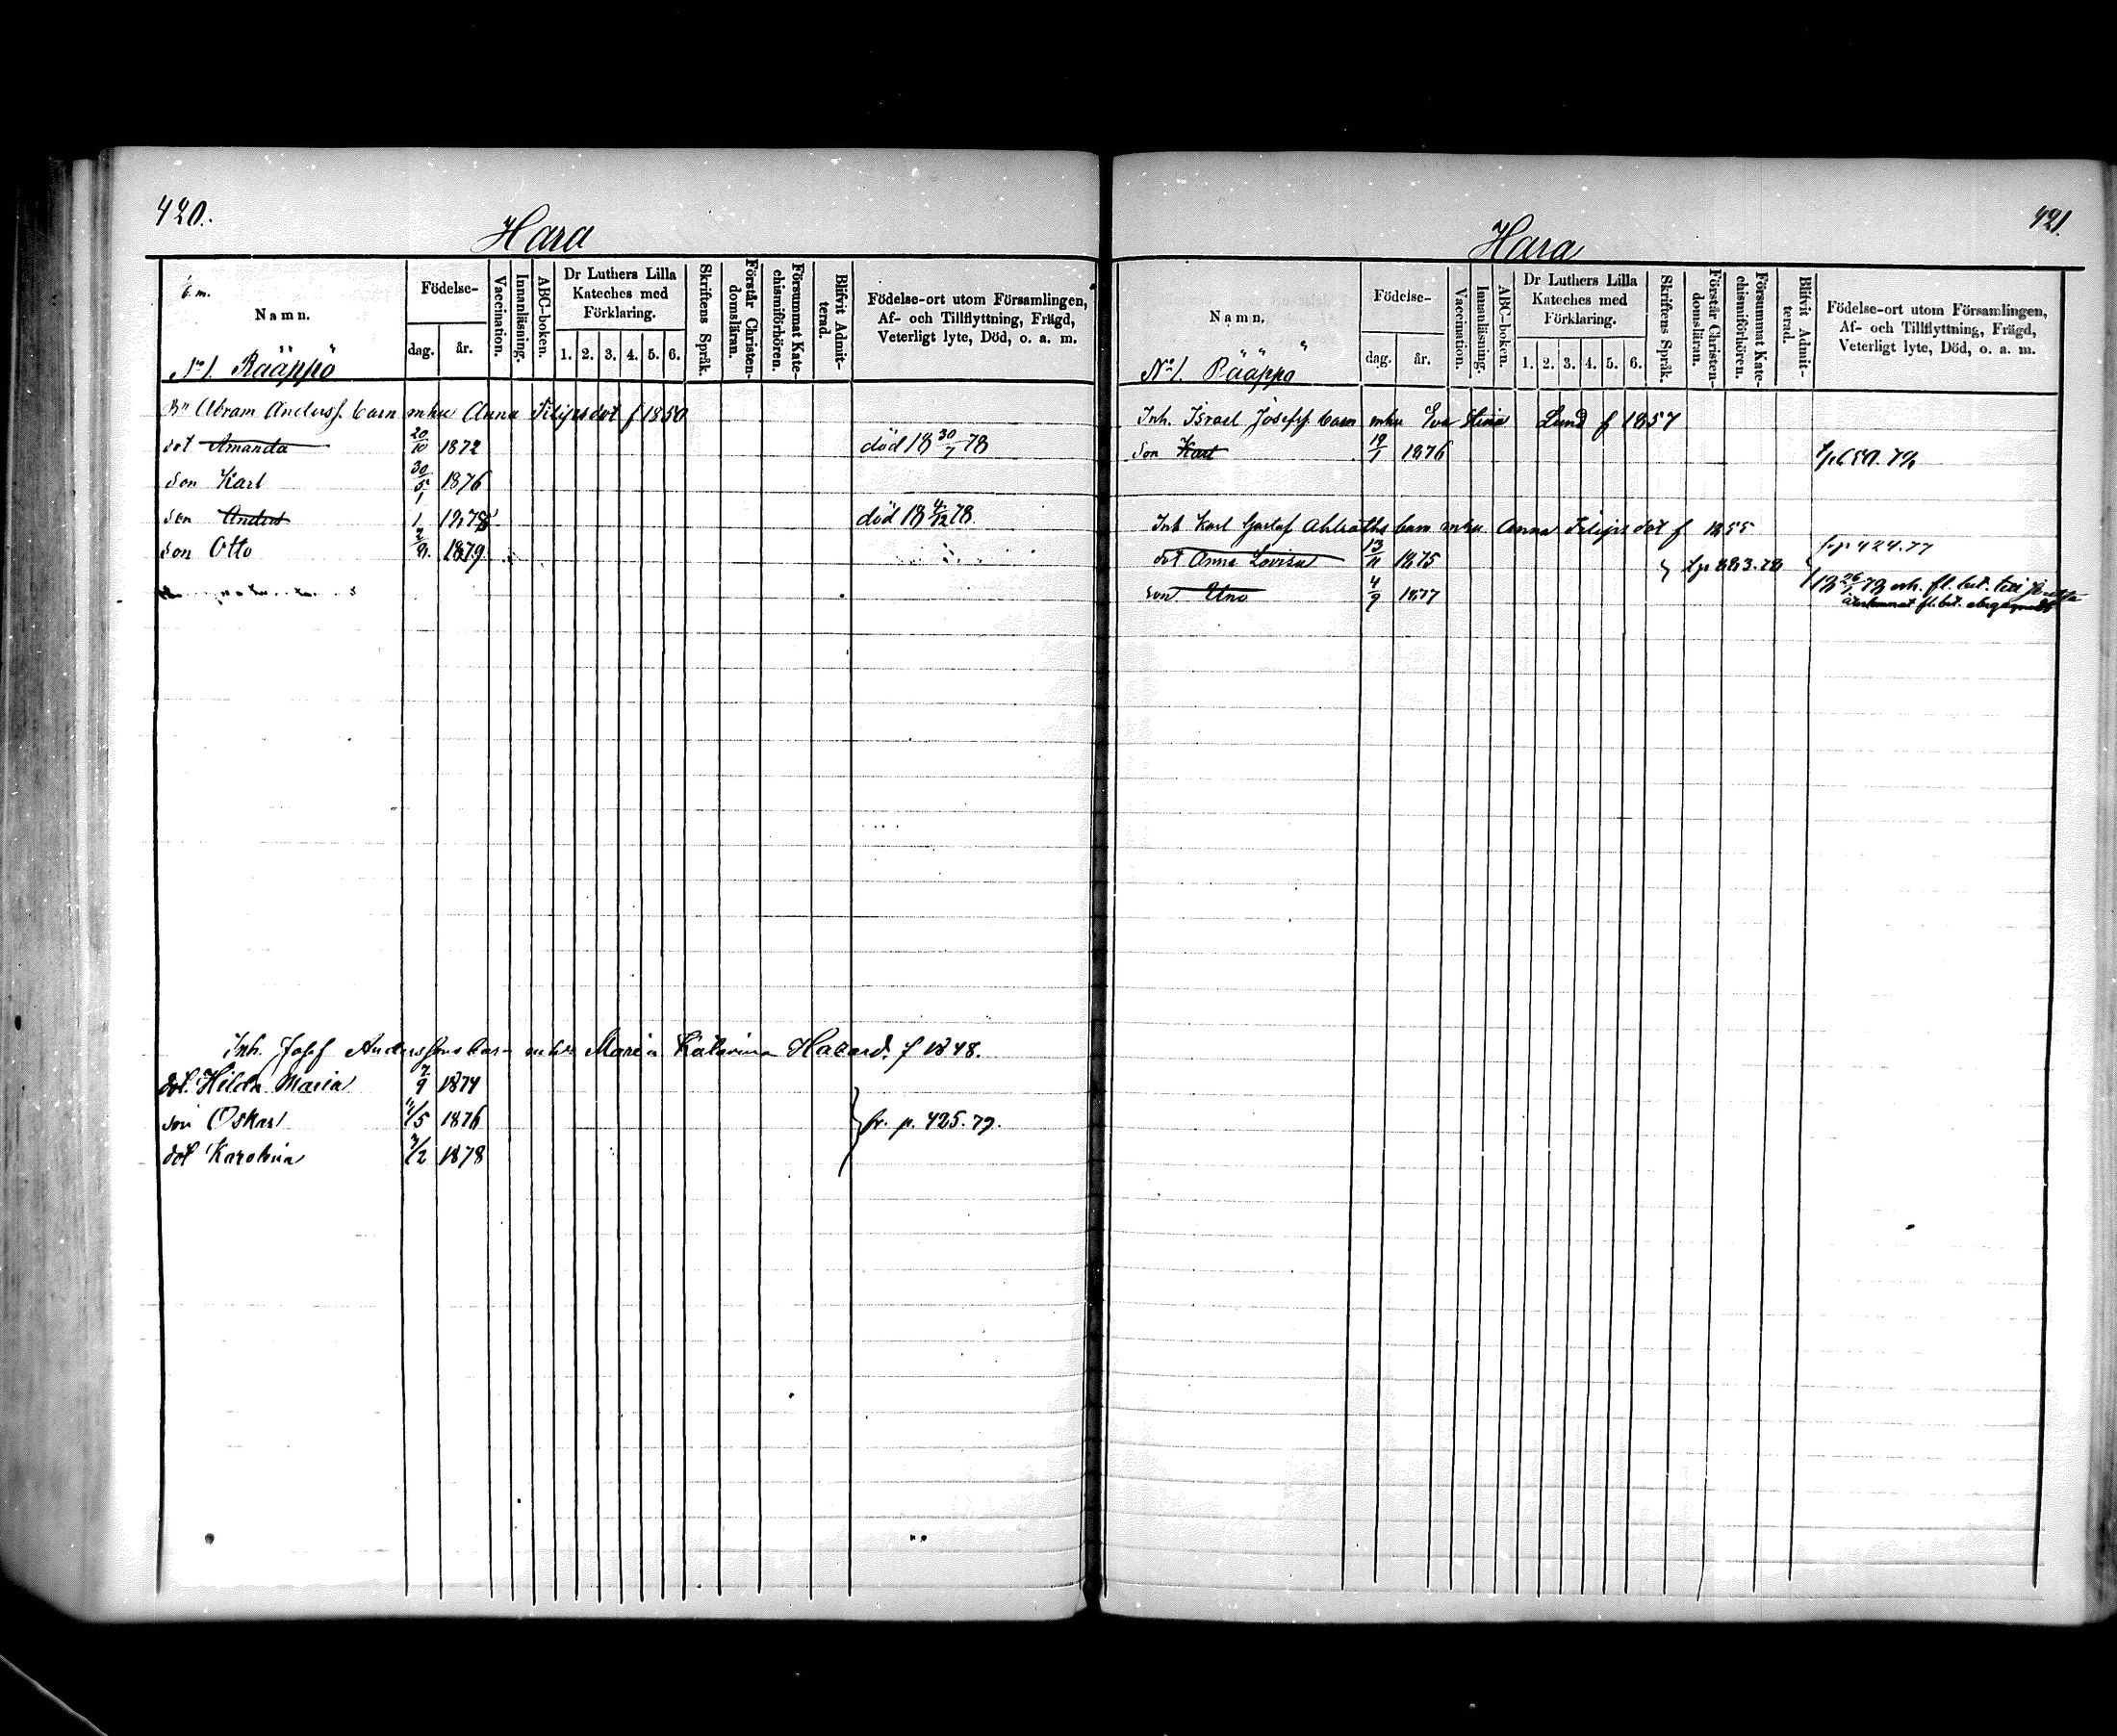 420.
Hara
b. m.
Namn.
Födelse-
dag.
år.
Vaccination.
Innanläsning.
ABC-boken.
Dr Luthers Lilla
Kateches med
Förklaring.
1. 2. 3. 4. 5. 6.
Skriftens Språk.
Förstår Christen-
domsläran.
Försummat Kate-
chismiförhören.
Blifvit Admit-
terad.
Födelse-ort utom Församlingen,
Af- och Tillflyttning, Frägd,
Veterligt lyte, Död, o. a. m.
No 1. Rääppö
Bn Abram Anderss. barn mhu Anna Filipsdot f 1850
dot Amanda 20/10 1872 död 18 30/7 78
son Karl 30/5 1876
son Anders 1/1 1878 död 18 4/12 78
son Otto 2/9 1879
Inh. Josef Anderssons barn mhu Maria Katarina f 1848.
dot. Hilda Maria 7/9 1874
son Oskar 11/5 1876
fr. p. 425.79.
dot Karolina 3/2 1878
421.
Hara
Namn.
Födelse-
dag.
år.
Vaccination.
Innanläsning.
ABC-boken.
Dr Luthers Lilla
Kateches med
Förklaring.
1. 2. 3. 4. 5. 6.
Skriftens Språk.
Förstår Christen-
domsläran.
Försummat Kate-
chismiförhören.
Blifvit Admit-
terad.
Födelse-ort utom Församlingen,
Af- och Tillflyttning, Frägd,
Veterligt lyte, Död, o. a. m.
No 1. Rääppö
Inh. Israel Josefss. barn mhu Eva Stina Lund f 1857
son Karl 19/1 1876
Inh Karl Gustaf Ahlroths barn mhu Anna Filipsdot f 1855
fr p 424.77
dot Anna Lovisa 13/11 1875
son Uno 4/9 1877
18 26/7 78 erh. fl. bet. till